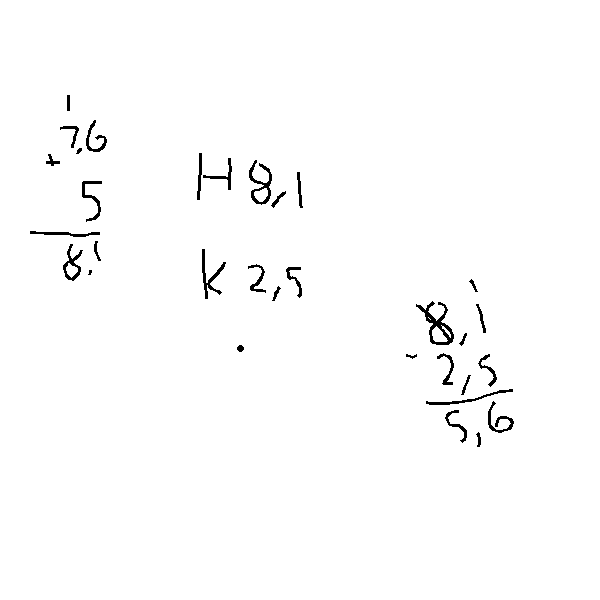 1
7,6
+
5
8,1
H 8,1
K 2,5
1
8,1
- 2,5
5,6